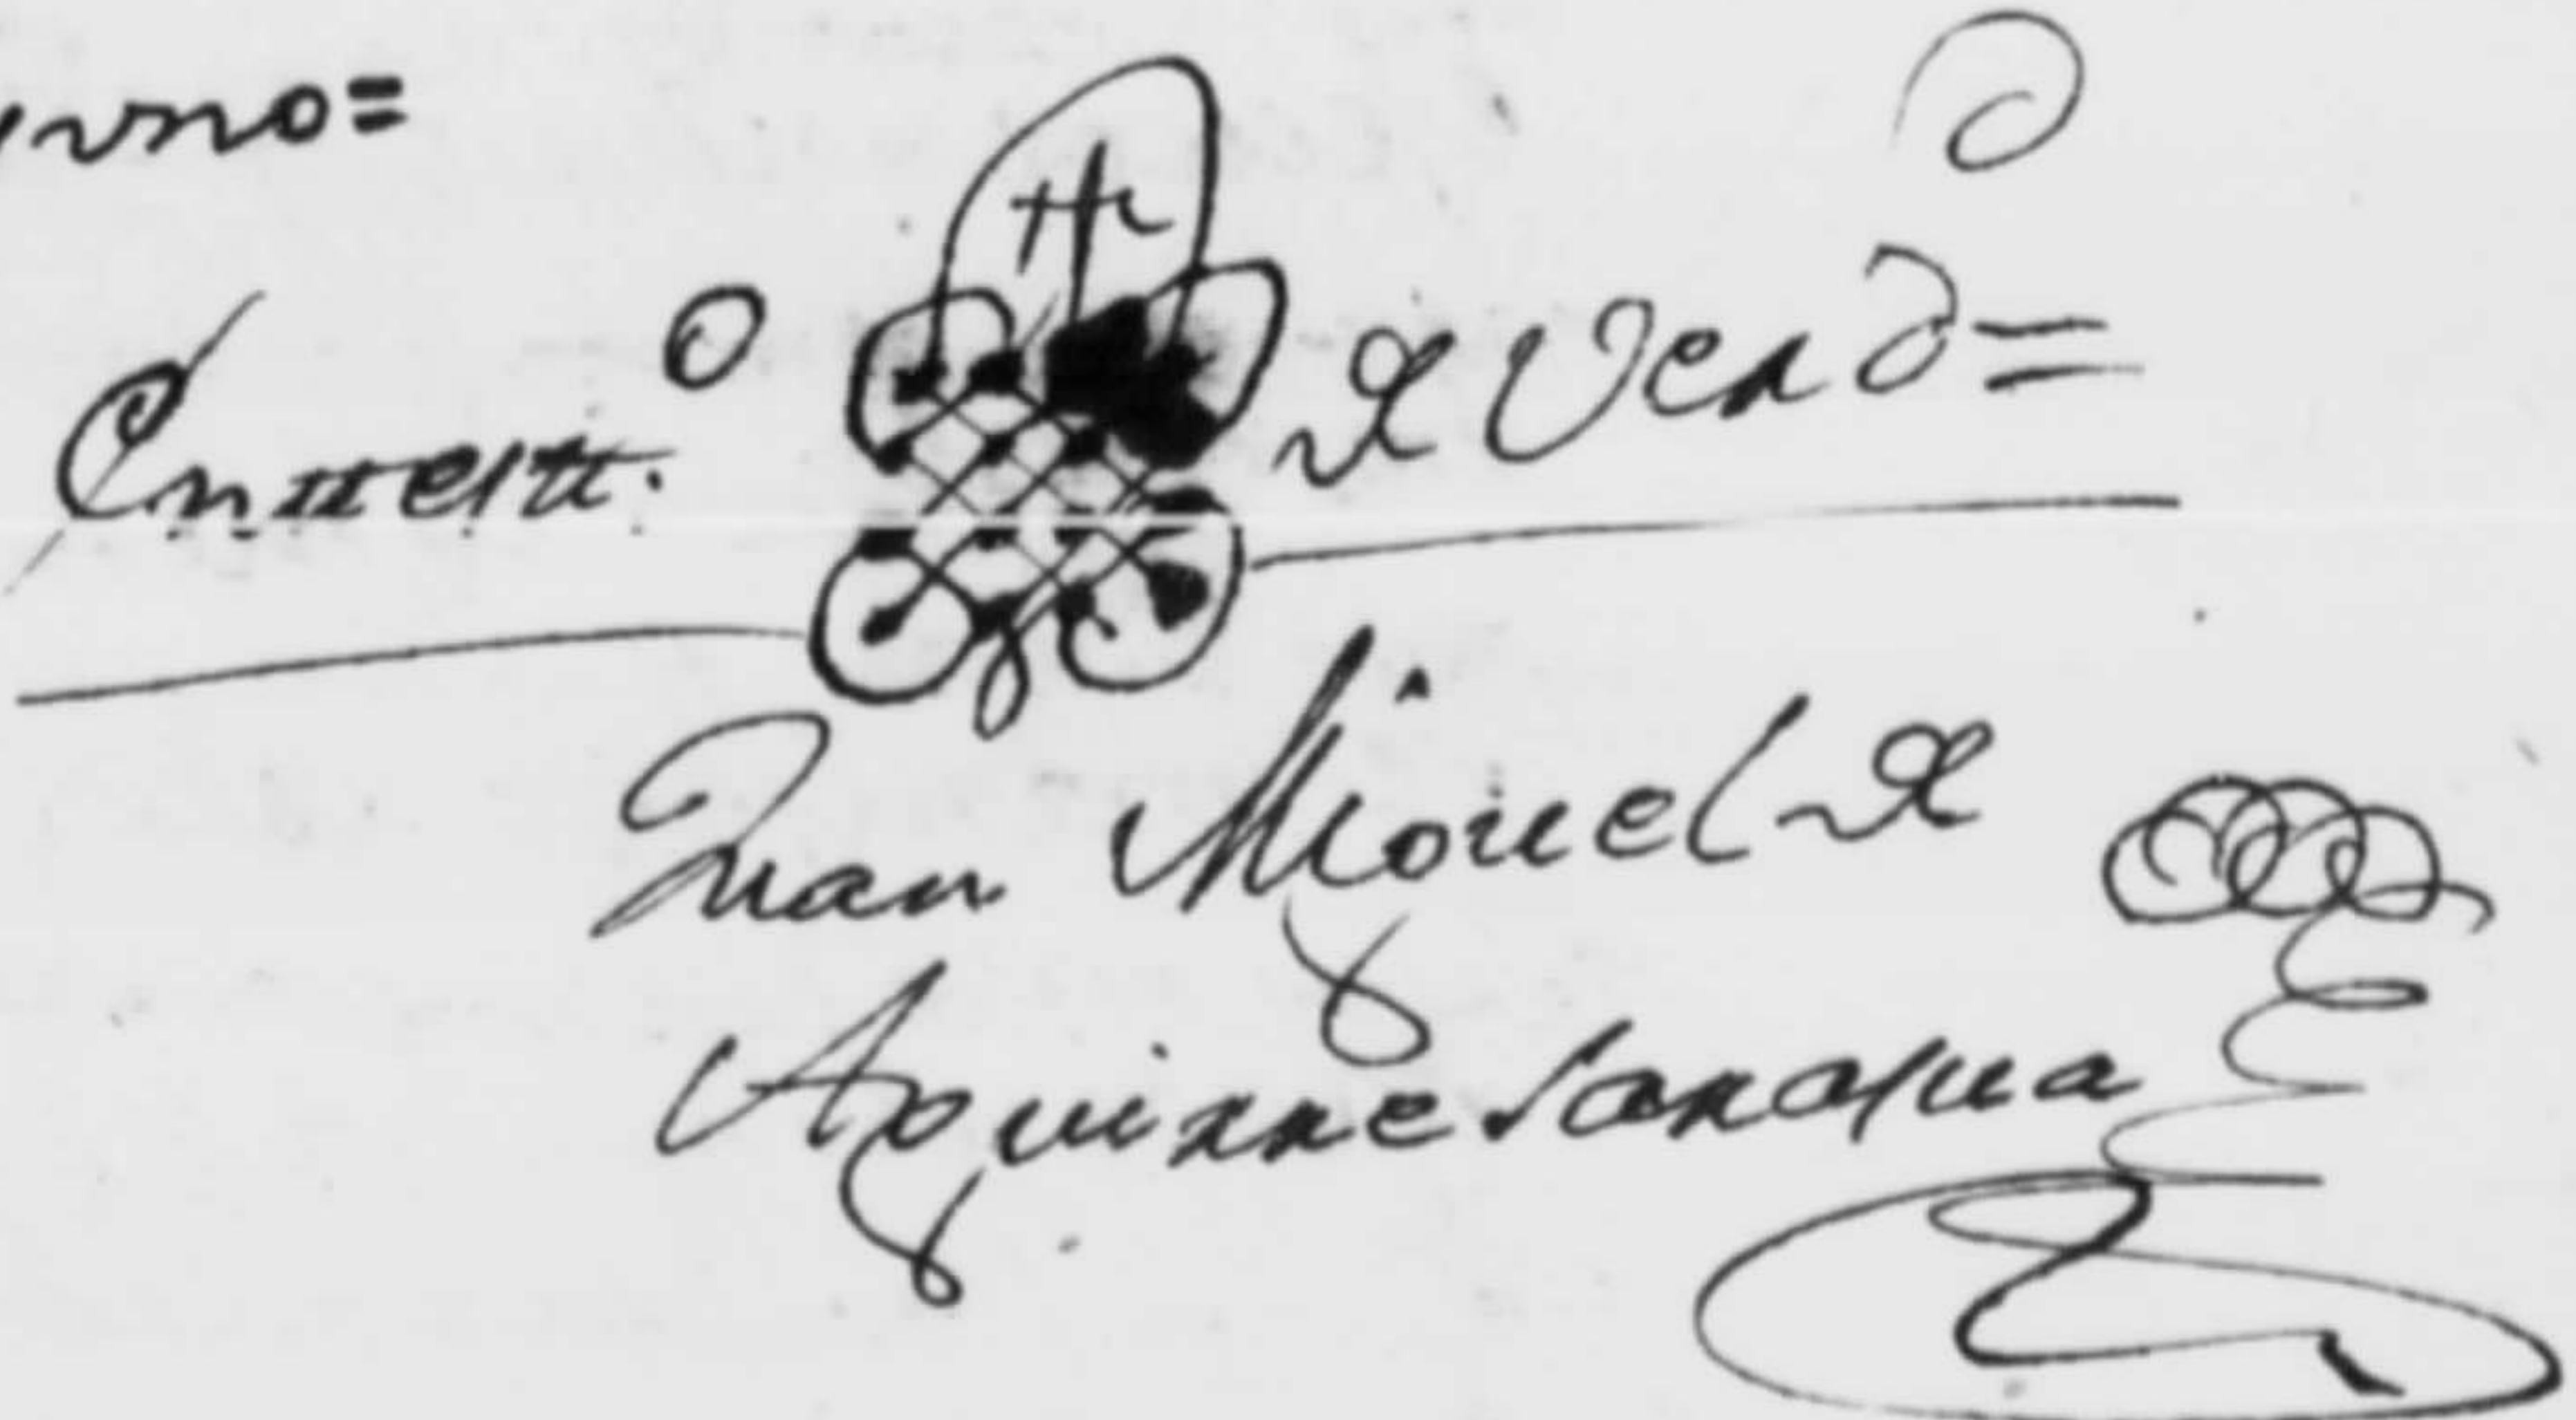 En testt.o de Verd=
Juan Miguel de
Aguirresaraşua